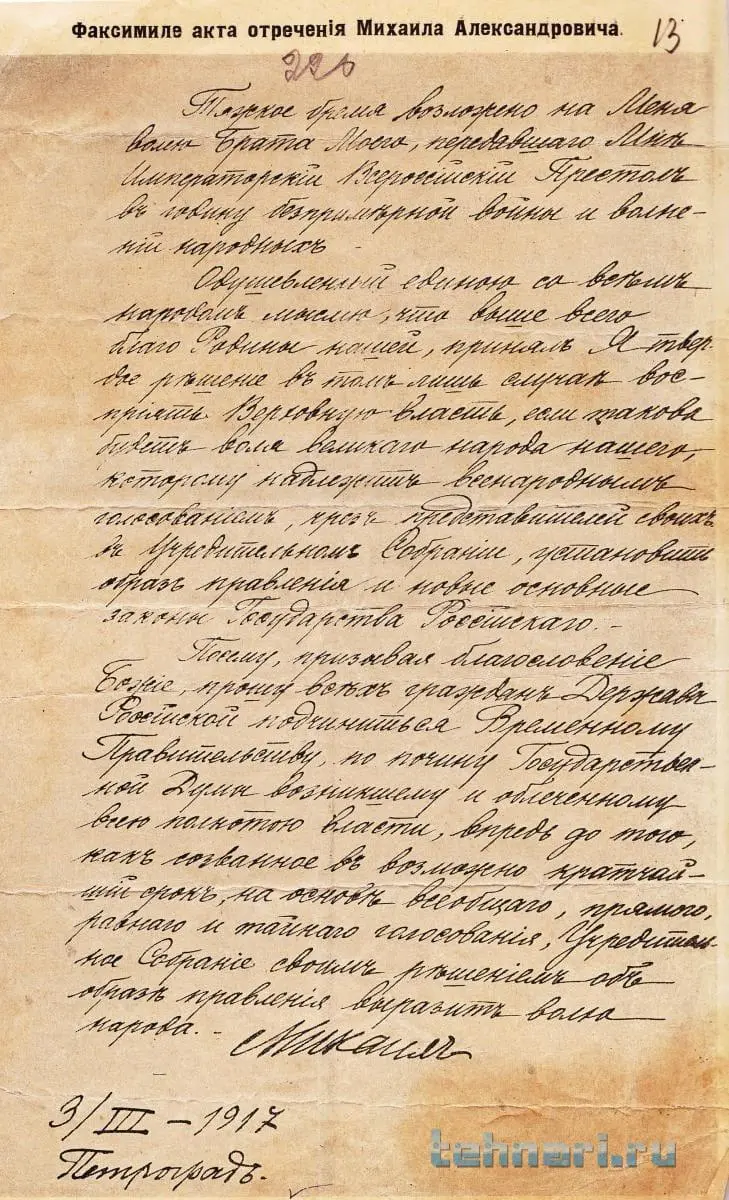 Факсимиле акта отреченія Михаила Александровича.
13
22б
Тяжкое бремя возложено на Меня
волею Брата Моего, передавшаго Мнѣ
Императорскій Всероссійскій Престолъ
въ годину безпримѣрной войны и волне-
ній народныхъ.
Одушевленный единою со всѣмъ
народомъ мыслію, что выше всего
благо Родины нашей, принялъ Я твер-
дое рѣшеніе въ томъ лишь случаѣ вос-
пріять Верховную власть, если такова
будетъ воля великаго народа нашего,
которому надлежитъ всенароднымъ
голосованіемъ, чрезъ представителей своихъ
въ Учредительномъ Собраніи, установить
образъ правленія и новые основные
законы Государства Россійскаго. –
Посему, призывая благословеніе
Божіе, прошу всѣхъ гражданъ Державы
Россійской подчиниться Временному
Правительству, по почину Государствен-
ной Думы возникшему и облеченному
всею полнотою власти, впредь до того,
какъ созванное въ возможно кратчай-
шій срокъ, на основѣ всеобщаго, прямого,
равнаго и тайнаго голосованія, Учредитель-
ное Собраніе своимъ рѣшеніемъ объ
образѣ правленія выразитъ волю
народа. –
Михаилъ
3/III – 1917
Петроградъ.
tehnari.ru